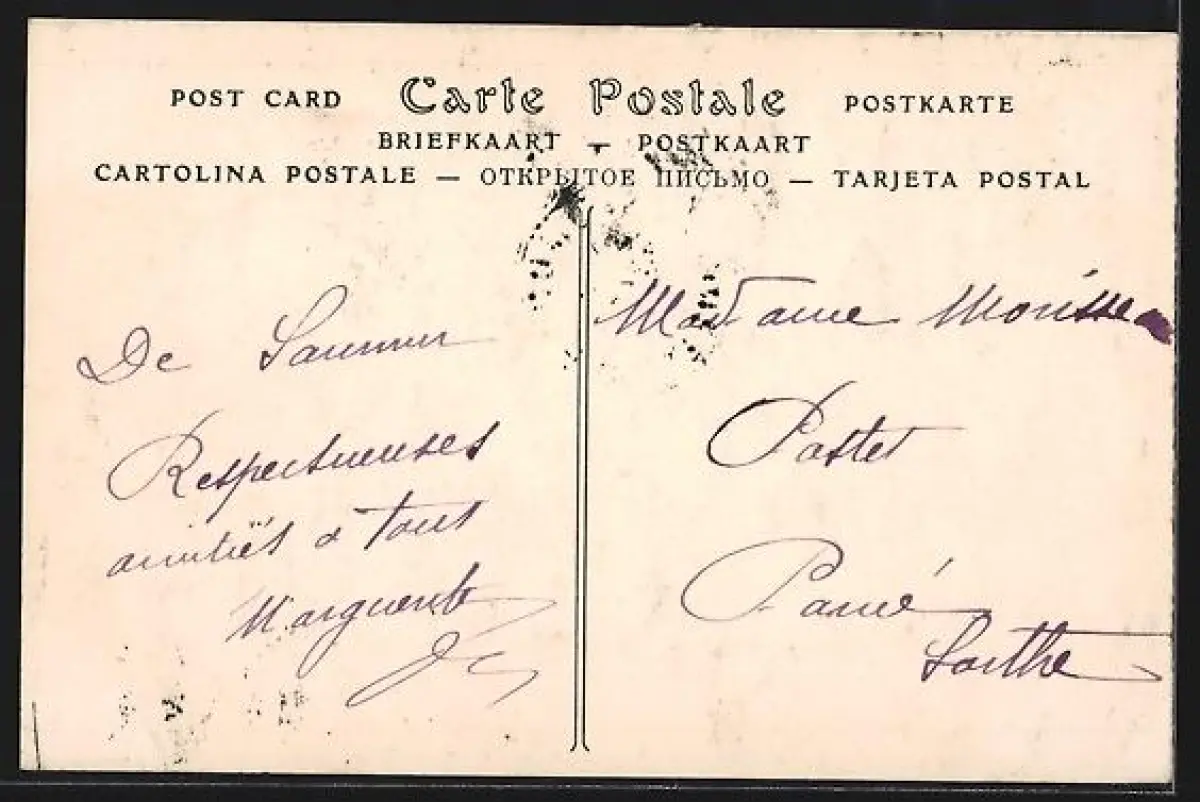 POST CARD Carte Postale POSTKARTE
BRIEFKAART — POSTKAART
CARTOLINA POSTALE — ОТКРЫТОЕ ПИСЬМО — TARJETA POSTAL
De Saumur
Respectueuses
amitiés a tous
Marguerite
Madame
Poste
Parcé
Sarthe